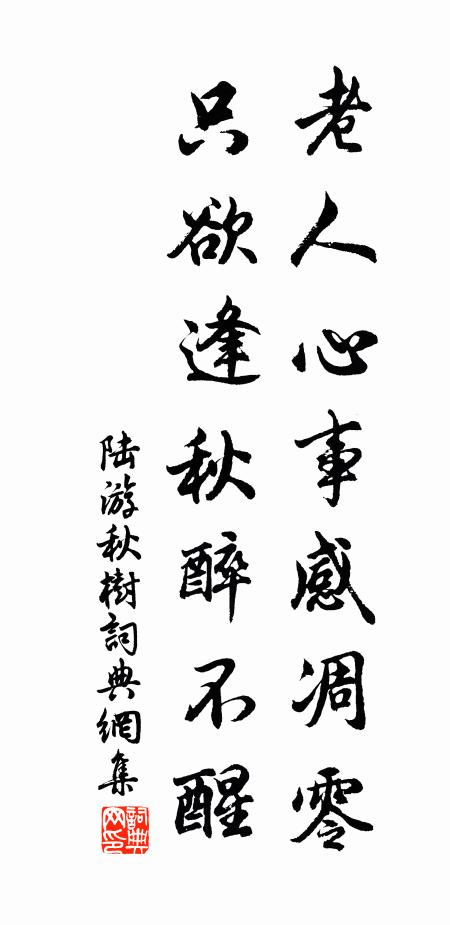 老人心事感凋零
只欲逢秋醉不醒
陆游秋樹詞典網集
詞典网印